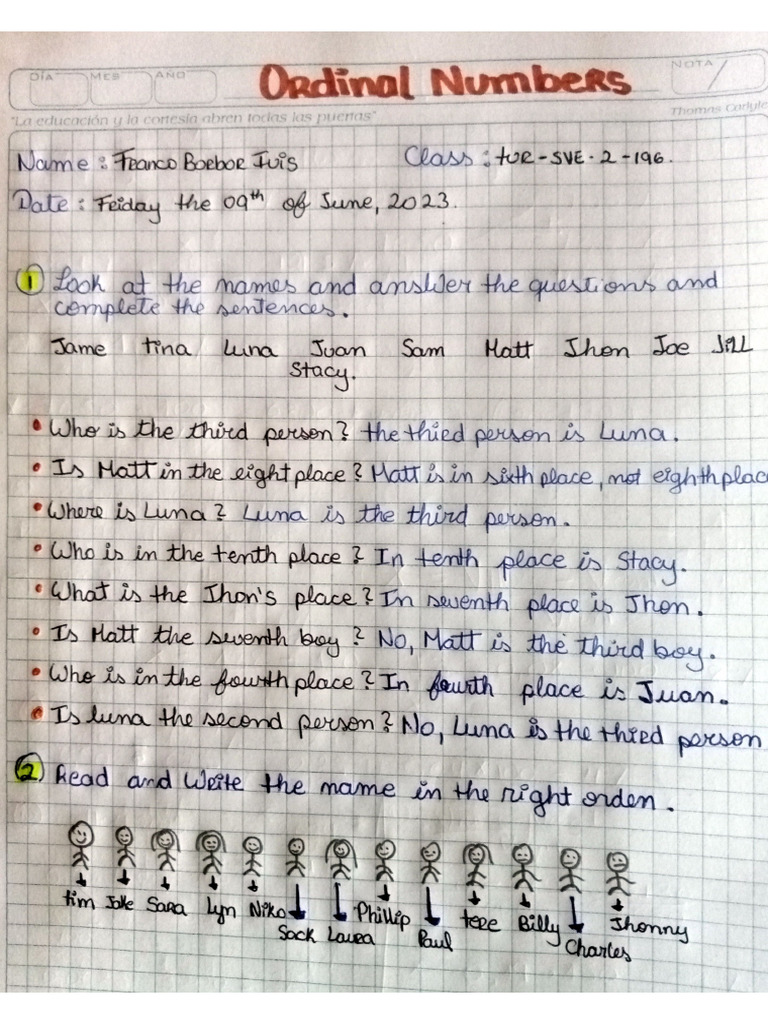 Ordinal Numbers
DÍA MES AÑO NOTA
"La educación y la cortesía abren todas las puertas" Thomas Carlyle
Name : Franco Borbor Ivis Class : tUR-SVE-2-196.
Date : Friday the 09th of June, 2023.
1 Look at the names and answer the questions and
complete the sentences.
Jame tina Luna Juan Sam Matt Jhon Joe Jill
Stacy.
• Who is the third person? the third person is Luna.
• Is Matt in the eight place? Matt is in sixth place, not eighth place
• Where is Luna? Luna is the third person.
• Who is in the tenth place? In tenth place is Stacy.
• What is the Jhon's place? In seventh place is Jhon.
• Is Matt the seventh boy? No, Matt is the third boy.
• Who is in the fourth place? In fourth place is Juan.
• Is luna the second person? No, Luna is the third person
2 Read and Write the name in the right orden.
tim Jake Sara Lyn Niko Phillip tere Billy Jhonny
Sock Laura Paul Charles